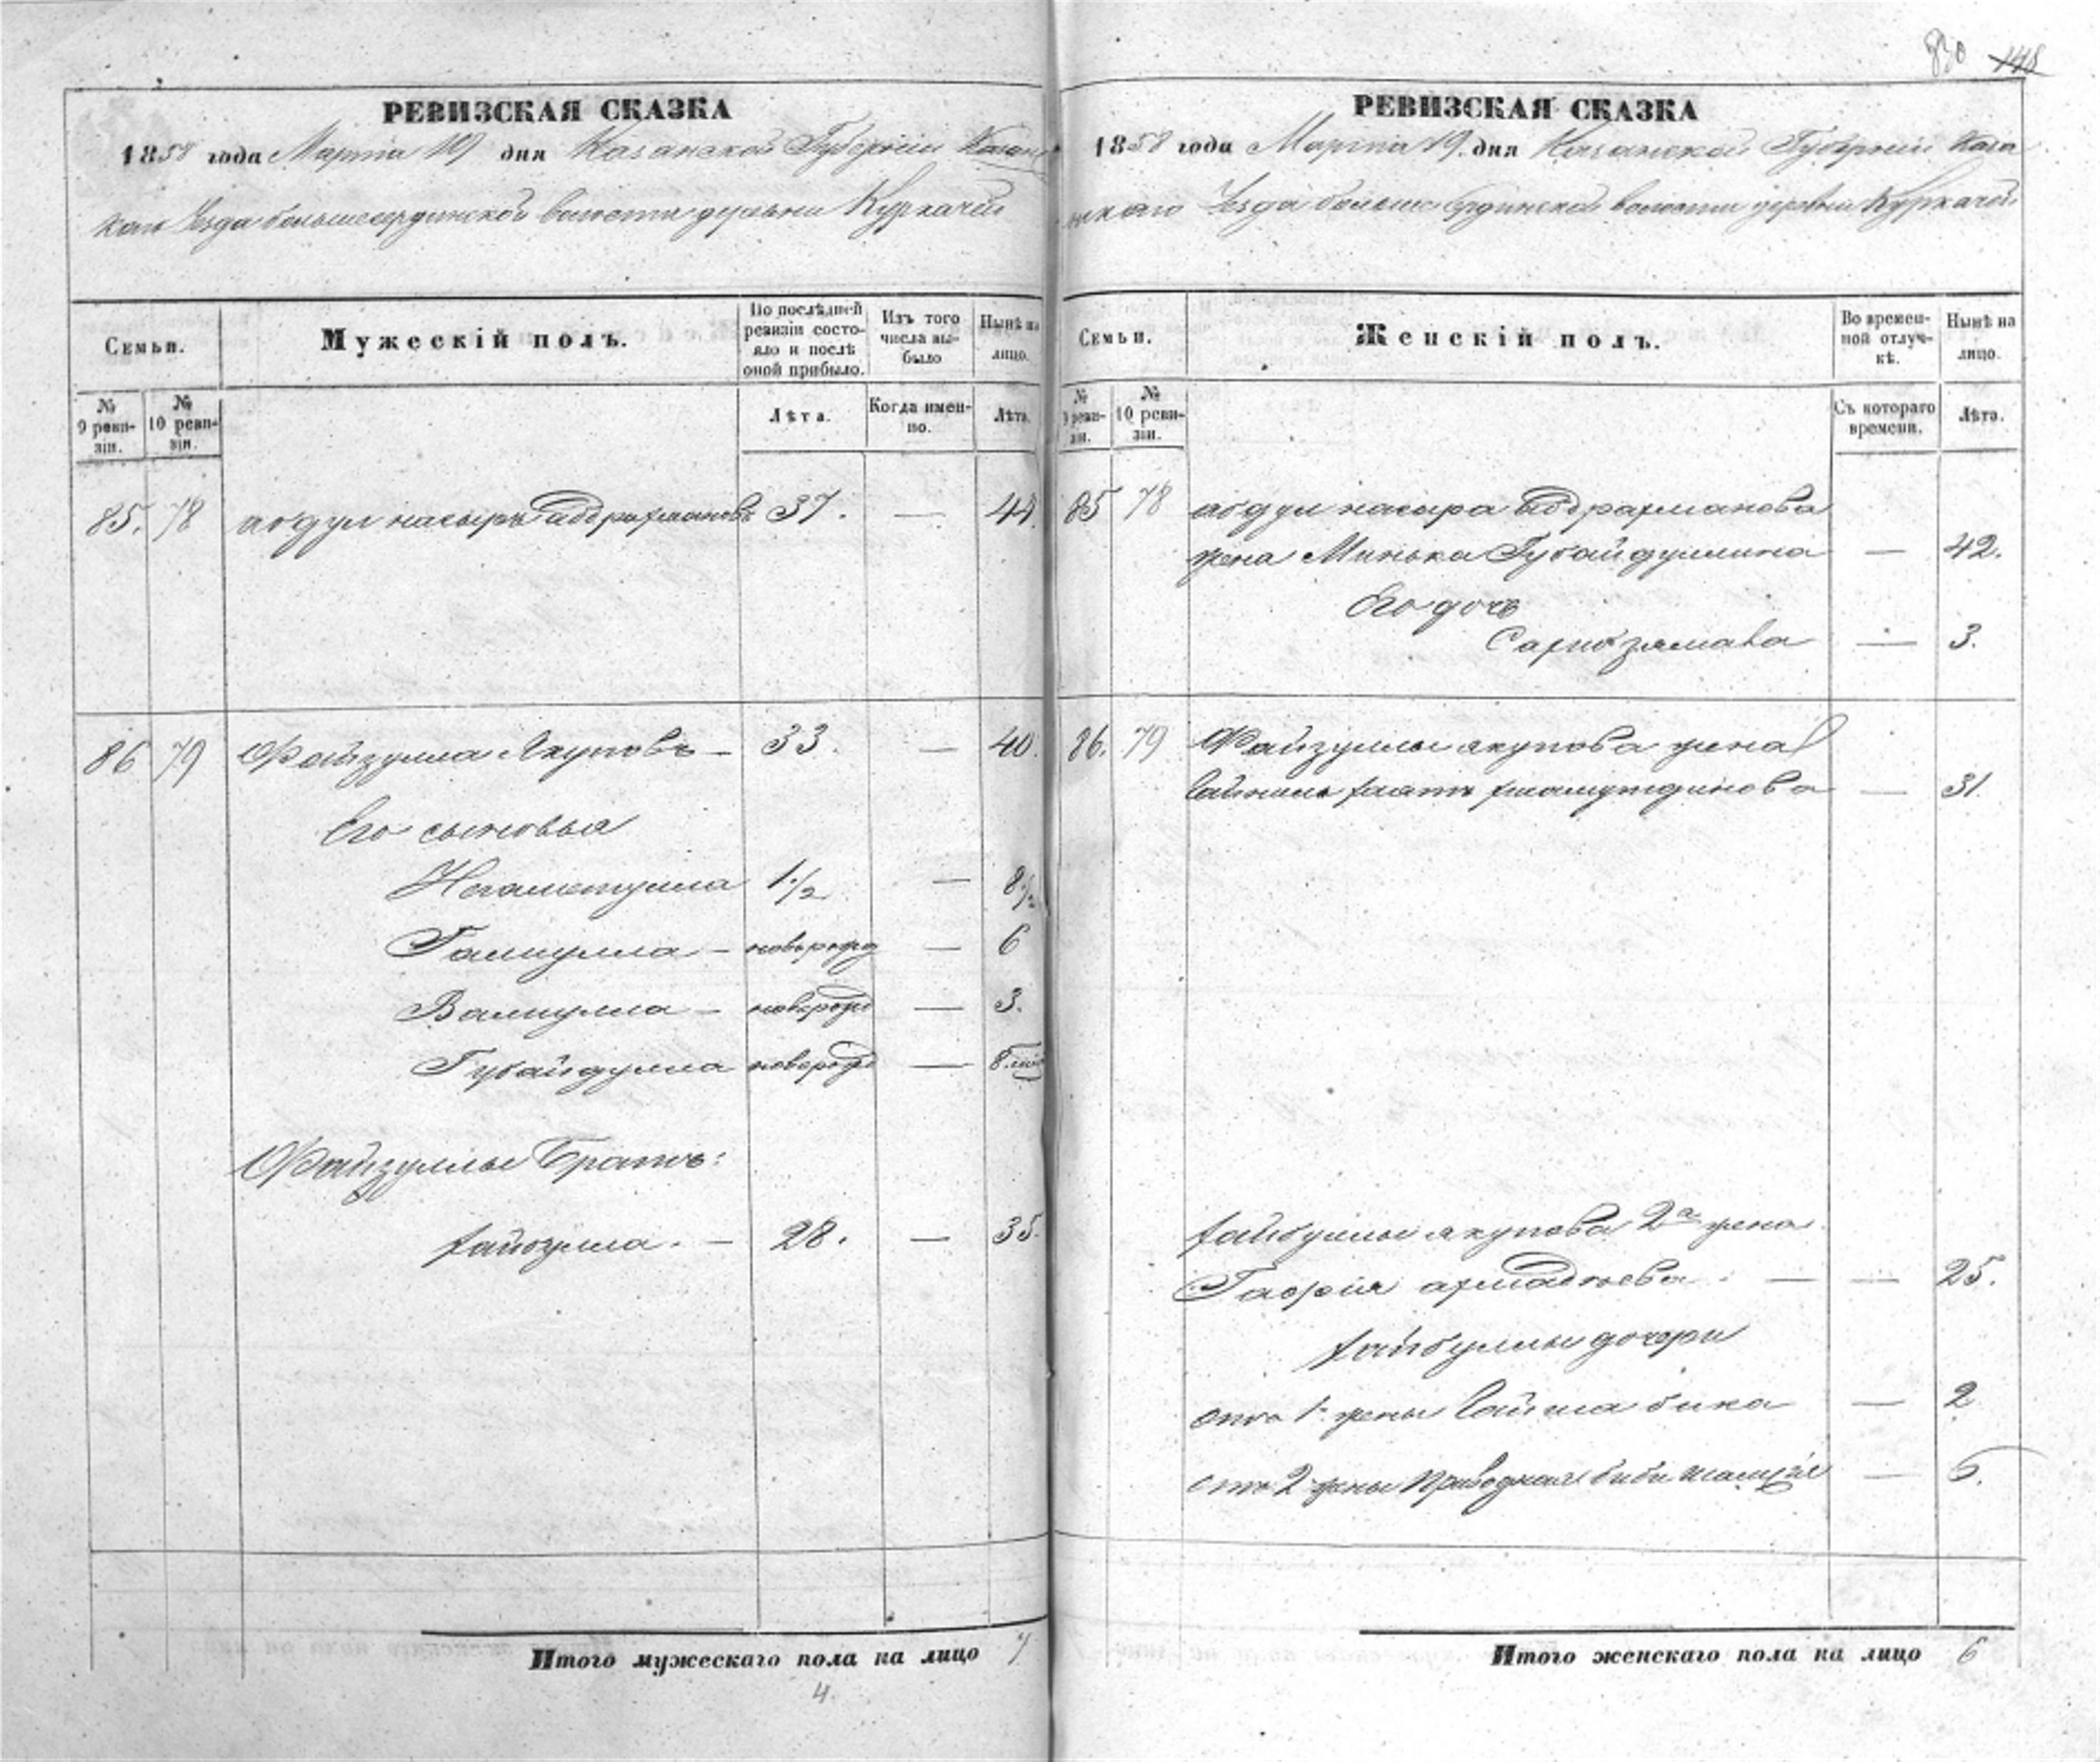 830 148
РЕВИЗСКАЯ СКАЗКА
1858 года Марта 19 дня Казанской Губернии Казанс
каго Уезда большесердинской волости деревни Куркачи
Семьи.
Мужескій полъ.
По послѣдней ревизіи состояло и послѣ оной прибыло.
Изъ того числа выбыло
Нынѣ на лицо.
№ 9 ревизіи.
№ 10 ревизіи.
Лѣта.
Когда именно.
Лѣта.
85. 78 абдул насыръ абдрахмановъ 37. — 44.
86 79 Файзулла Якуповъ — 33. — 40.
Его сыновья
Негаметулла 1½ — 8½
Галиулла — новорожд — 6
Валиулла — новорожд — 3.
Губайдулла новорожд — 8
Файзуллы братъ:
хайбулла. — 28. — 35.
Итого мужескаго пола на лицо 7
4.
РЕВИЗСКАЯ СКАЗКА
1858 года Марта 19. дня Казанской Губернии Каза
нскаго Уезда больше сердинской волости деревни Куркачи
Семьи.
Женскій полъ.
Во временной отлучкѣ.
Нынѣ на лицо.
№ 9 ревизіи.
№ 10 ревизіи.
Съ котораго времени.
Лѣта.
85 78 абдул насыра абдрахманова
жена Минька Губайдуллина — 42.
Его дочь
— 3.
86. 79 Файзуллы якупова жена
— 31.
хайбуллы якупова 2я жена
ахмадиева. — — 25.
хайбуллы дочери
отъ 1й жены бика — 2
отъ 2 жены биби — 6.
Итого женскаго пола на лицо 6